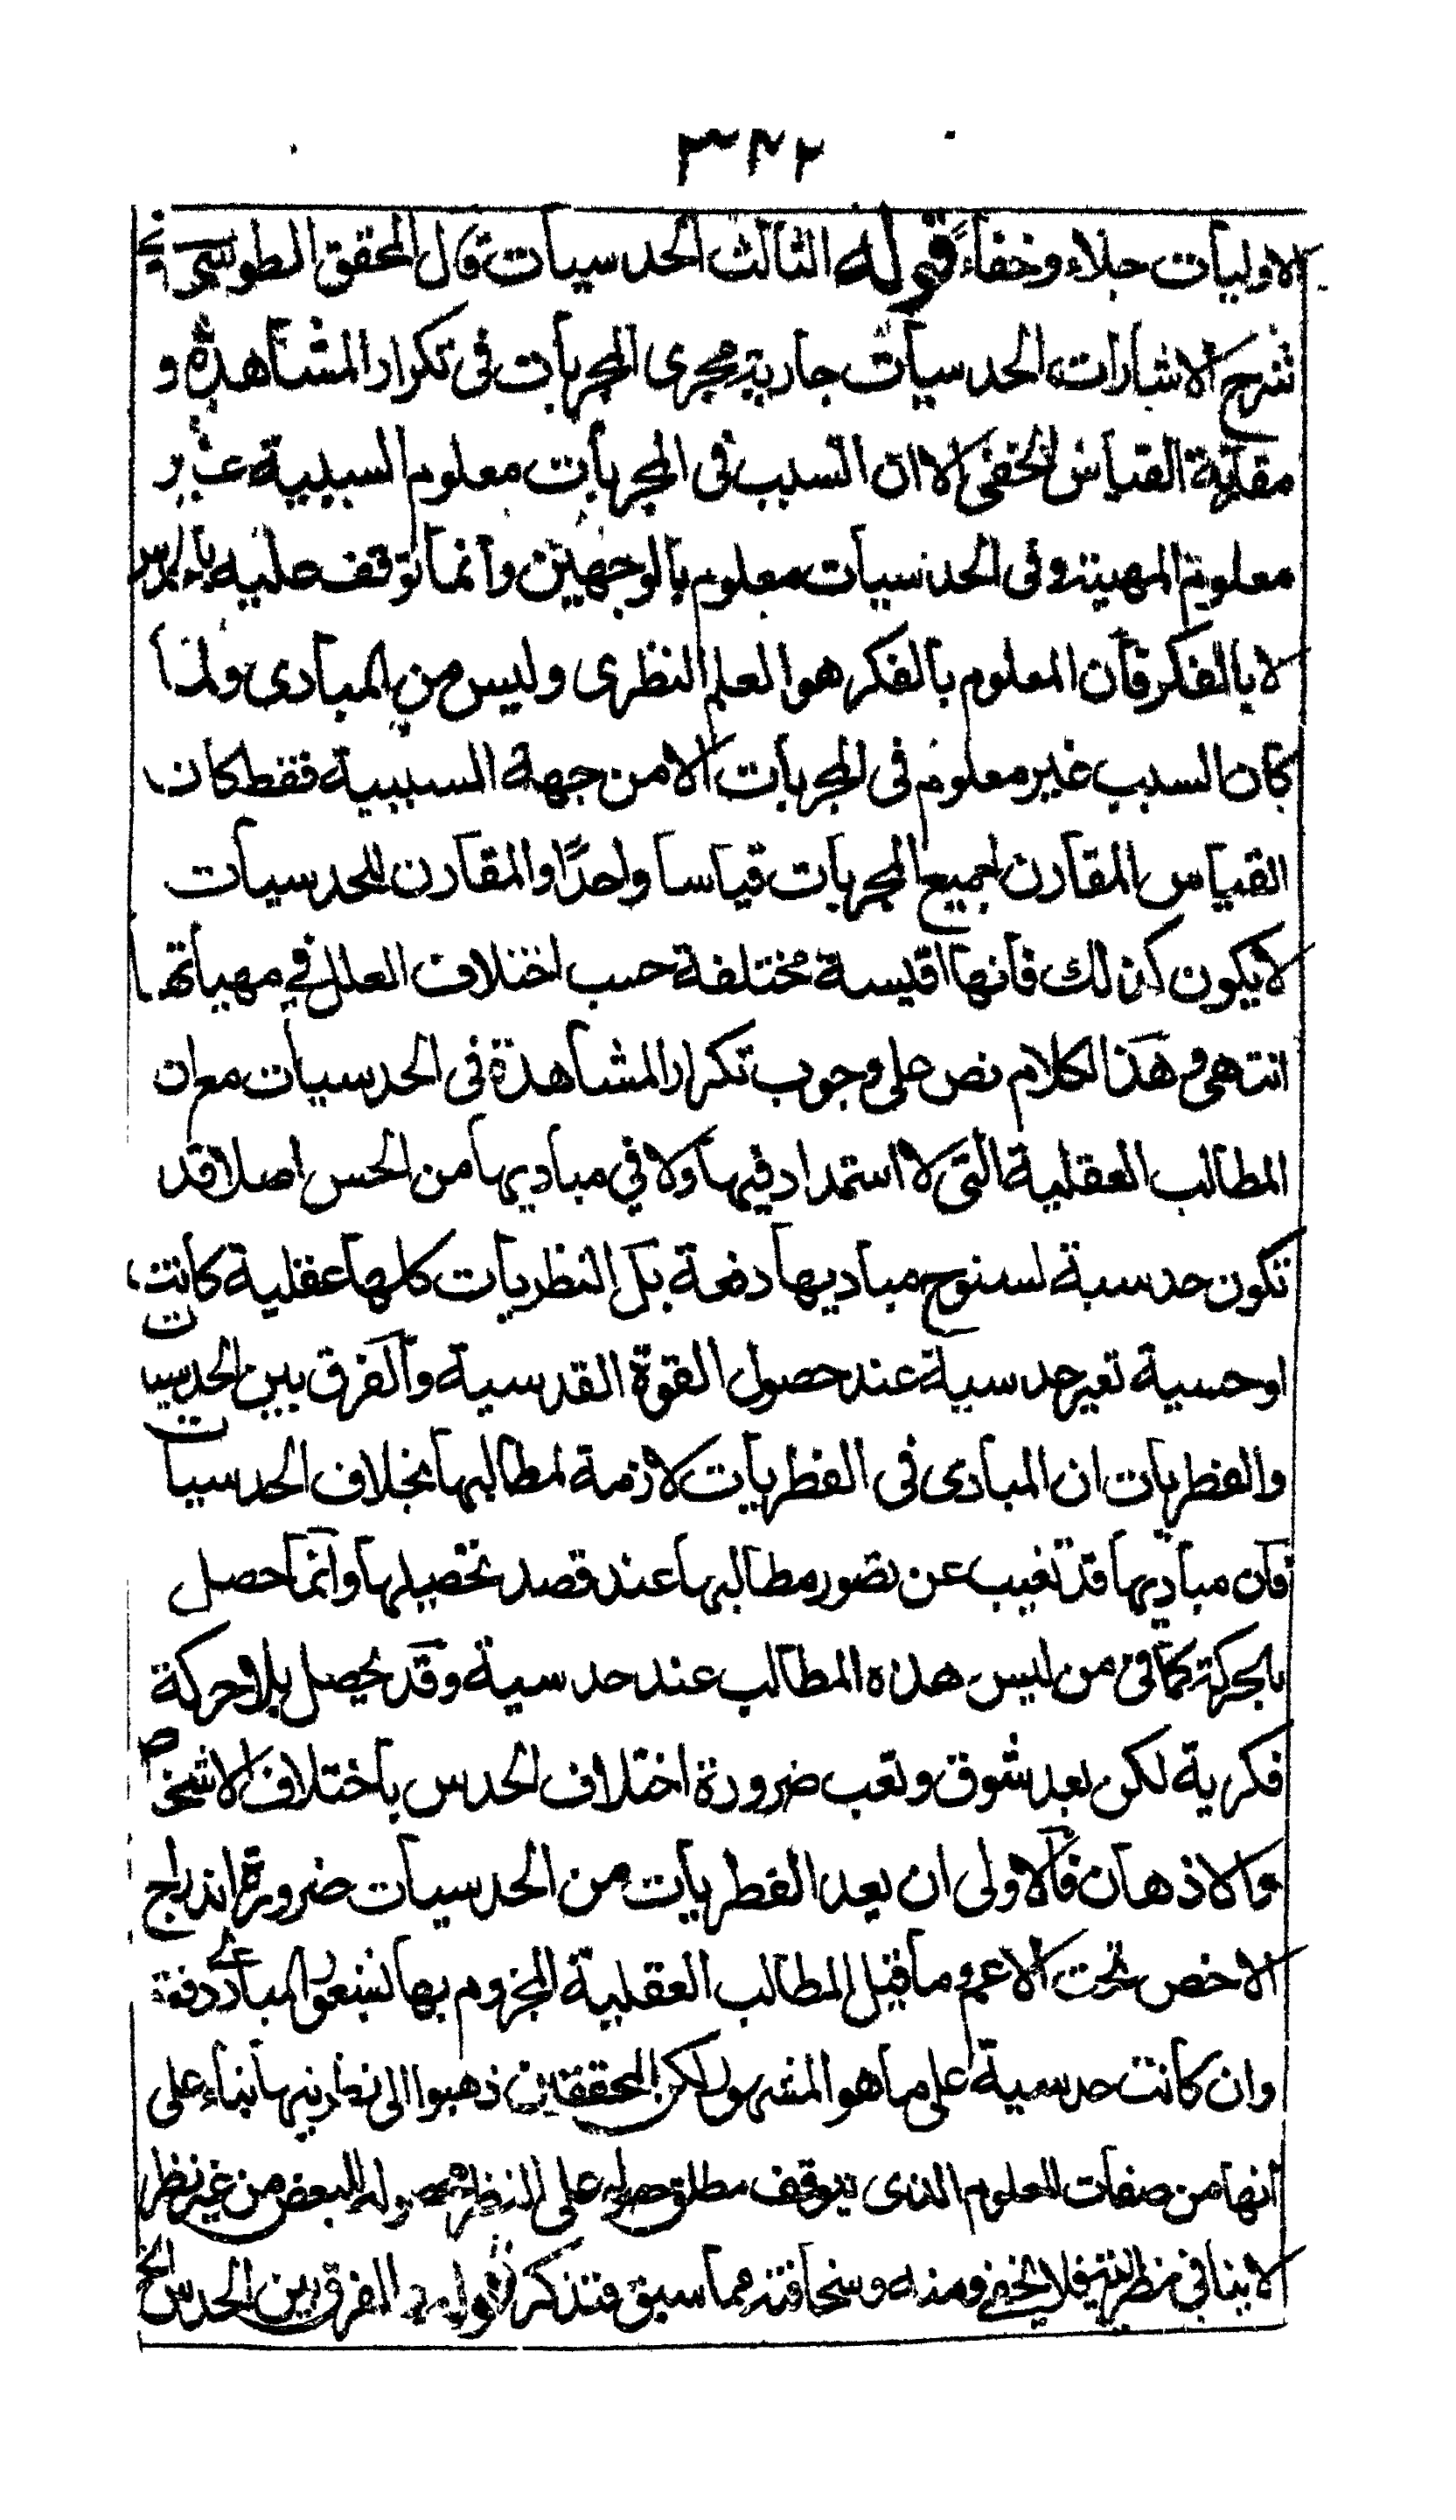 ٣٤٢
الاوليات جلاء وخفاءً قوله الثالث الحدسيات قال المحقق الطوسي في
شرح الاشارات الحدسيات جارية مجرى المجربات فى تكرار المشاهدة و
مقارنة القياس الخفى الا ان السبب فى المجربات معلوم السببية غير
معلوم المهية وفى الحدسيات معلوم بالوجهين وانما توقف عليه بالحدس
لا بالفكر فان المعلوم بالفكر هو العلم النظرى وليس من المبادى ولما
كان السبب غير معلوم فى المجربات الا من جهة السببية فقط كان
القياس المقارن لجميع المجربات قياسا واحدًا والمقارن للحدسيات
لا يكون كذلك فانها اقيسة مختلفة حسب اختلاف العلل في مهياتها
انتهى وهذا الكلام نص على وجوب تكرار المشاهدة فى الحدسيات مع ان
المطالب العقلية التى لا استمداد فيها ولا في مباديها من الحس اصلا قد
تكون حدسية لسنوح مباديها دفعة بل النظريات كلها عقلية كانت
او حسية تغير حدسية عند حصول القوة القدسية والفرق بين الحدسيات
والفطريات ان المبادى فى الفطريات لازمة لمطالبها بخلاف الحدسيات
فان مباديها قد تغيب عن تصور مطالبها عند قصد تحصيلها وانما حصل
بالحركة كما فى من ليس هذه المطالب عند حدسية وقد يحصل بلا حركة
فكرية لكن بعد شوق وتعب ضرورة اختلاف الحدس باختلاف الاشخاص
والاذهان فالاولى ان يعد الفطريات من الحدسيات ضرورة اندراج
الاخص تحت الاعم وما قيل المطالب العقلية المجزوم بها لسنوح المبادى دفعة
وان كانت حدسية على ما هو المشهور لكن المحققين ذهبوا الى نظريتها بناء على
انها من صفات المعلوم الذى يتوقف مطلق حصوله على النظر فحصوله للبعض من غير نظر
لا ينافى نظريته فلا يخفى وهنه وسخافته مما سبق فتذكر قوله الفرق بين الحدس الخ